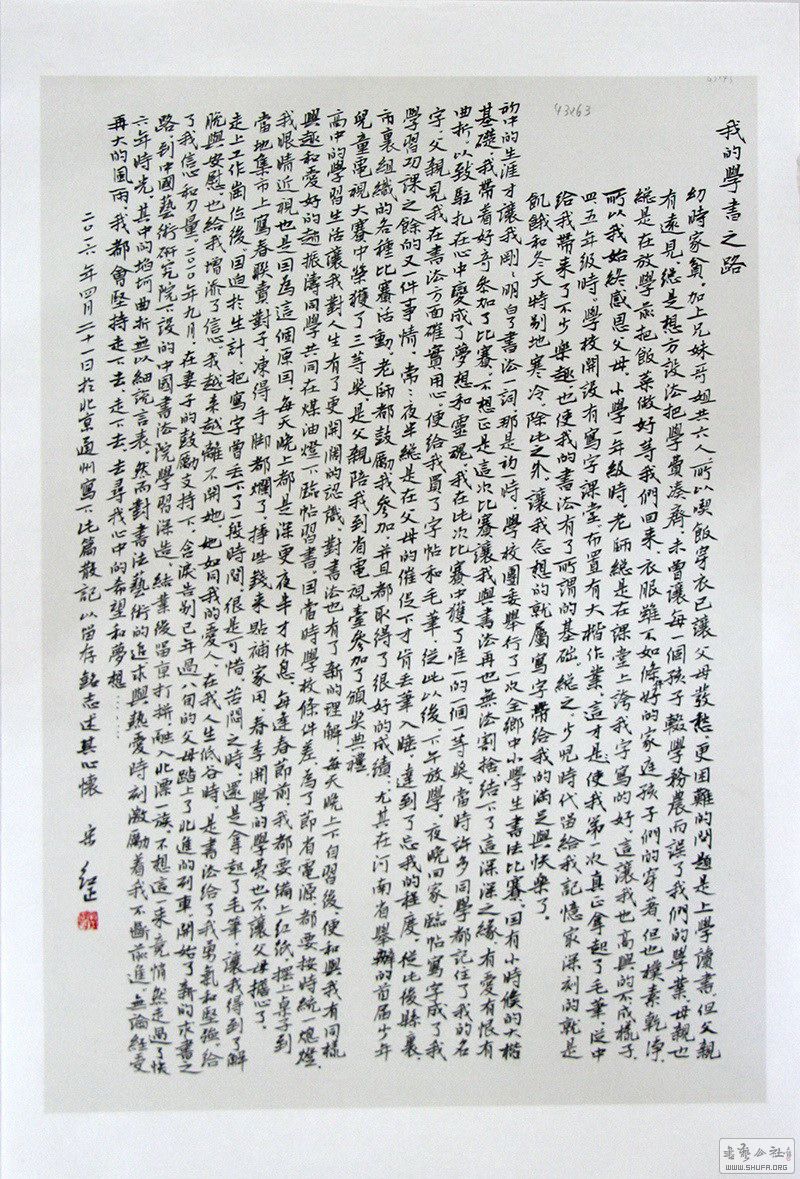 43×63
我的學書之路
幼時家貧，加上兄妹哥姐共六人，所以喫飯穿衣已讓父母發愁，更困難的問題是上學讀書，但父親
有遠見，總是想方設法把學費湊齊，未曾讓每一個孩子輟學務農而誤了我們的學業，母親也
總是在放學前把飯菜做好等我們回來，衣服雖不如條件好的家庭孩子們的穿著，但也樸素乾淨，
所以我始終感恩父母。小學一年級時，老師總是在課堂上誇我字寫的好，這讓我也高興的不成樣子，
四五年級時。學校開設有寫字課堂，布置有大楷作業，這才是使我第一次真正拿起了毛筆，從中
給我帶來了不少樂趣也使我的書法有了所謂的基礎，總之，少兒時代留給我記憶最深刻的就是
飢餓和冬天特别地寒冷，除此之外，讓我念想的就屬寫字帶給我的滿足與快樂了。
初中的生涯才讓我剛剛明白了書法一詞，那是初一時，學校團委舉行了一次全鄉中小學生書法比賽，因有小時候的大楷
基礎，我帶着好奇參加了比賽，不想正是這次比賽讓我與書法再也無法割捨，結下了這深深之緣，有愛有恨有
曲折，以致駐扎在心中變成了夢想和靈魂，我在此次比賽中獲了唯一的一個一等獎，當時許多同學都記住了我的名
字，父親見我在書法方面確實用心，便給我買了字帖和毛筆，從此以後，下午放學，夜晚回家，臨帖寫字成了我
學習功課之餘的又一件事情，常常夜半總是在父母的催促下才肯丟筆入睡，達到了忘我的程度，從此後縣裏、
市裏組織的各種比賽活動，老師都鼓勵我參加，并且都取得了很好的成績，尤其在河南省舉辦的首届少年
兒童電視大賽中榮獲了三等獎，是父親陪我到省電視臺參加了頒獎典禮
高中的學習生活讓我對人生有了更開闊的認識，對書法也有了新的理解，每天晚上下自習後，便和與我有同樣
興趣和愛好的趙振濤同學共同在煤油燈下臨帖習書，因當時學校條件差，為了節省電源都要按時統一熄燈，
我眼睛近視也是因為這個原因，每天晚上都是深更夜半才休息，每逢春節前，我都要備上紅紙，擺上桌子到
當地集市上寫春聯賣對子，凍得手脚都爛了，掙些錢來貼補家用，春季開學的學費也不讓父母操心了。
走上工作崗位後，因迫於生計，把寫字曾丢下了段時間，很是可惜，苦悶之時，還是拿起了毛筆，讓我得到了解
脱與安慰，也給我增添了信心，我越來越離不開她，她如同我的愛人，在我人生低谷時，是書法給了我勇氣和堅強，給
了我信心和力量，二〇〇〇年九月，在妻子的鼓勵支持下，含淚告别已年過八旬的父母踏上了北進的列車，開始了新的求書之
路，到中國藝術研究院下設的中國書法院學習深造，結業後留京打拼，融入北漂一族，不想這一來竟悄然走過了快
六年時光，其中的坎坷曲折無以細説言表，然而對書法藝術的追求與熱愛時刻激勵着我不斷前進，無論經受
再大的風雨，我都會堅持走下去，走下去，去尋我心中的希望和夢想……
二〇一六年四月二十一日於北京通州寫下此篇散記以留存銘志述其心懷 宋紅正
書藝公社
WWW.SHUFA.ORG